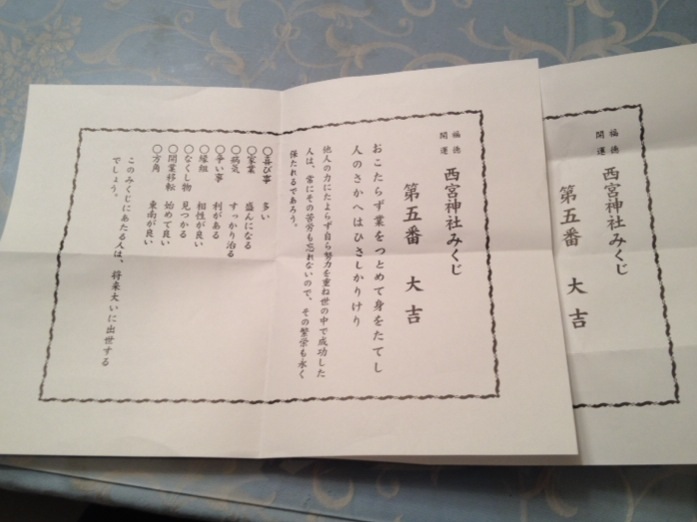 福徳
開運
西宮神社みくじ
第五番 大吉
おこたらず業をつとめて身をたてし
人のさかへはひさしかりけり
他人の力にたよらず自ら努力を重ね世の中で成功した
人は、常にその苦労も忘れないので、その繁栄も永く
保たれるであろう。
〇喜び事 多い
〇家業 盛んになる
〇病気 すっかり治る
〇争い事 利がある
〇縁組 相性が良い
〇なくし物 見つかる
〇開業移転 始めて良い
〇方角 東南が良い
このみくじにあたる人は、将来大いに出世する
でしょう。
福徳
開運
西宮神社みくじ
第五番 大吉